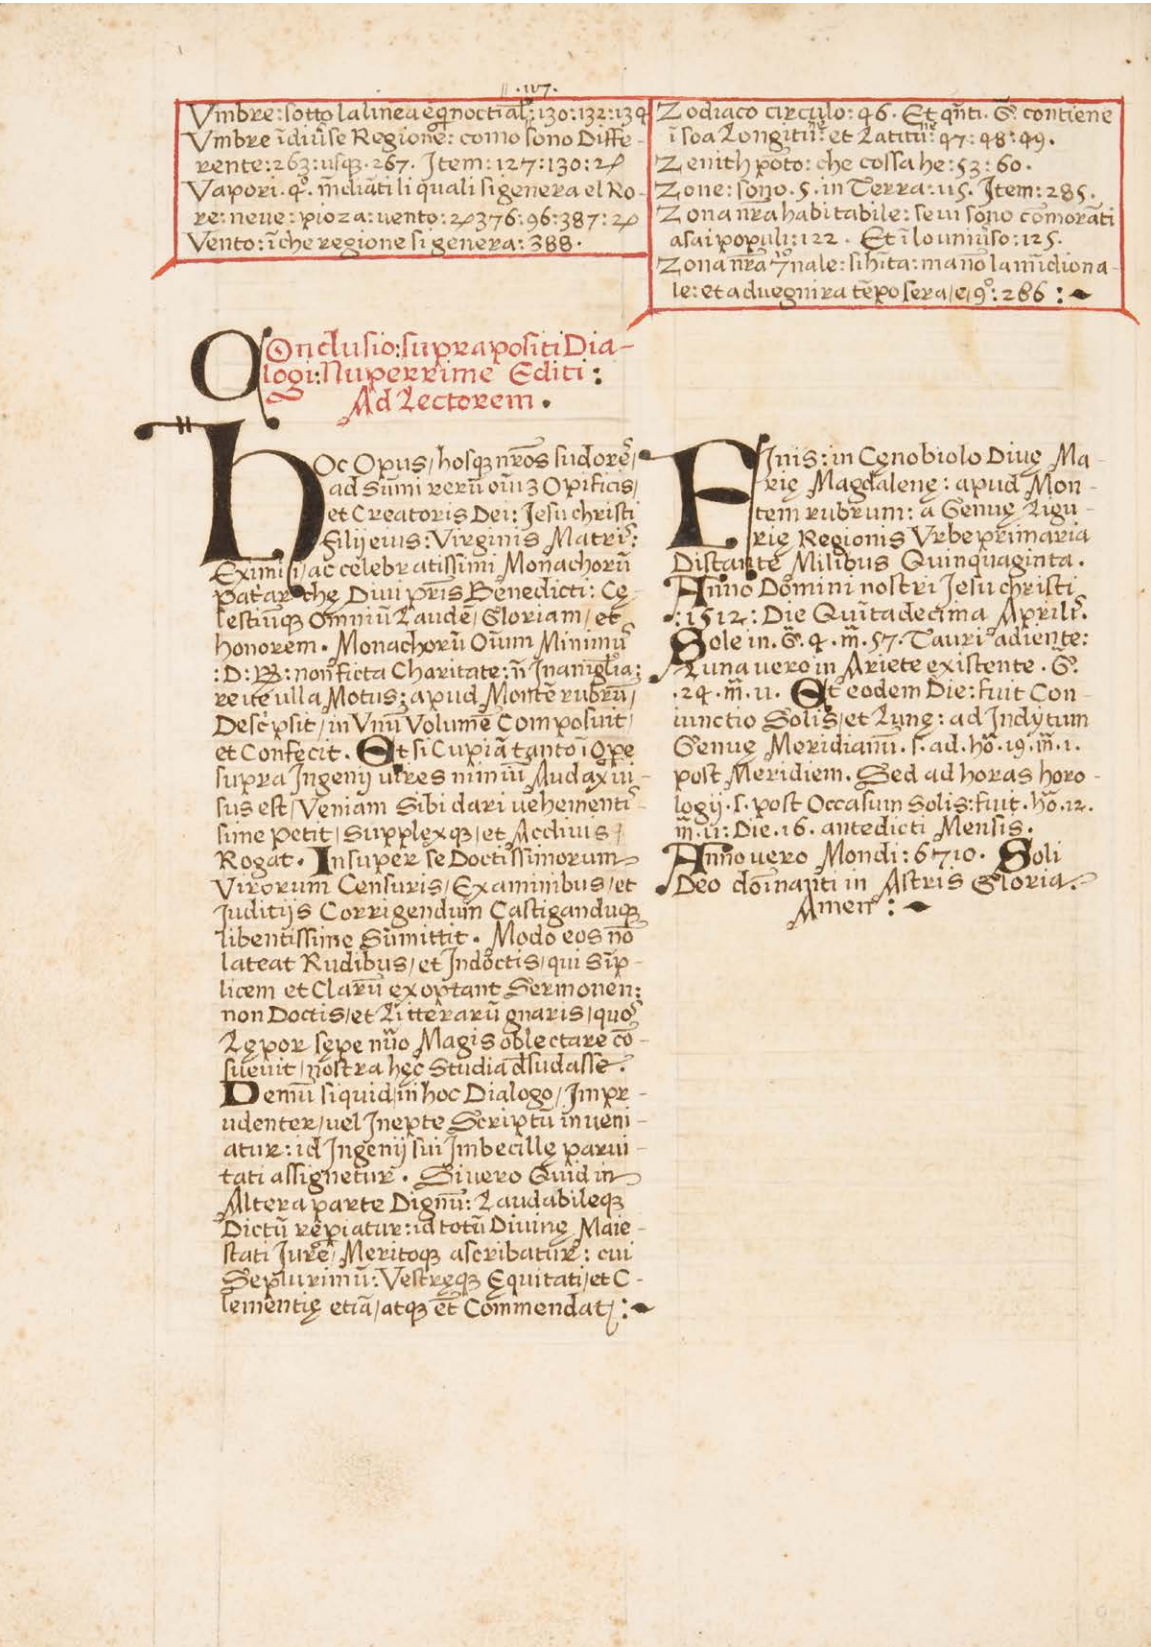 .117.
Vmbre: sotto la linea eq̄noctial̄: 130: 132: 134
Vmbre ī diūse Regionē: como sono Diffe-
rente: 263: usq3 267. Item: 127: 130: 2⁊
Vapori. q.° m̄diāti li quali si genera el Ro-
re: neue: pioza: uento: 2⁊ 376: 96: 387: 2⁊
Vento: ī che regione si genera: 388.
Zodiaco circulo: 46. Et qn̄ti. G̃. contiene
ī soa Longitū: et Latitū: 47: 48: 49.
Zenith pōto: che cossa he: 53: 60.
Zone: sono. 5. in Terra: 115. Item: 285.
Zona nr̄a habitabile: se ui sono cōmorāti
asai populi: 122. Et ī lo uniūso: 125.
Zona nr̄a nale: si hīta: ma nō la m̄idiona-
le: et aduegnira tēpo sera/e/9°: 286:
COnclusio: supra positi Dia-
logi: Nuperrime Editi:
Ad Lectorem.
HOc Opus/ hosq3 nr̄os sudorē/
ad Sūmi rerū oīu3 Opificis/
et Creatoris Dei: Jesu christi
filij eius: Virginis Matrī:
Eximi si/ ac celebratissimi Monachorū
patarche Diui pr̄is Benedicti: Cę
lestiūq3 Omniū Laudē/ Gloriam/ et
honorem. Monachorū Oīum Minimu᾿
:D: B: non ficta Charitate: n̄ Inani gl̄ia;
reue ulla Motus: apud Mōtē rubrū/
Descͥpsit/ in Vnū Volumē Composuit/
et Confecit. Et si Cupiā tanto ī Ope
supra Ingenij uires nimiū Audax ui-
sus est/ Veniam Sibi dari uehementi-
sime petit/ Supplexq3/ et Acchius/
Rogat. Insuper se Doctissimorum
Virorum Censuris/ Examinibus/ et
Juditijs Corrigendum Castigandūq3
libentissime Sūmittit. Modo eos nō
lateat Rudibus/ et Indoctis/ qui Sīp-
licem et Clarū exoptant Sermonen:
non Doctis/ et Litterarū gnaris/ quo᾿
Lępor sępe nūo Magis oblectare cō-
sueuit/ nostra hęc Studia dsudasse.
Demū si quid in hoc Dialogo/ Impr-
udenter/ uel Inepte Scriptū inueni-
atur: id Ingenij sui Imbecillę parui-
tati assignetur. Si uero Quid in
Altera parte Dignū: Laudabileq3
Dictū rēpiatur: id totū Diuinę Maie-
stati Jurē/ Meritoq3 ascribatur: cui
Se plurimū: Vestręq3 Equitati/ et C-
lementię etiā/ atq3 ēt Commendat:
FInis: in Cęnobiolo Diuę Ma-
rię Magdalenę: apud Mon-
tem rubrum: a Genuę Ligu-
rię Regionis Vrbe primaria
Distante Milibus Quinquaginta.
Anno Domini nostri Jesu christi
:1512: Die Quītadecima Aprilī.
Sole in. G̃. 4. m̄. 57. Tauri adiente:
Luna uero in Ariete existente. G̃.
.24. m̄. 11. Et eodem Die: fuit Con-
iunctio Solis/ et Lunę: ad Indytum
Genuę Meridianū. s. ad. hō. 19. m̄. 1.
post Meridiem. Sed ad horas horo-
logij. s. post Occasum Solis: fuit. hō. 12.
m̄. 11: Die. 16. antedicti Mensis.
Anno uero Mondi: 6710. Soli
Deo doīnanti in Astris Gloria.
Amen: